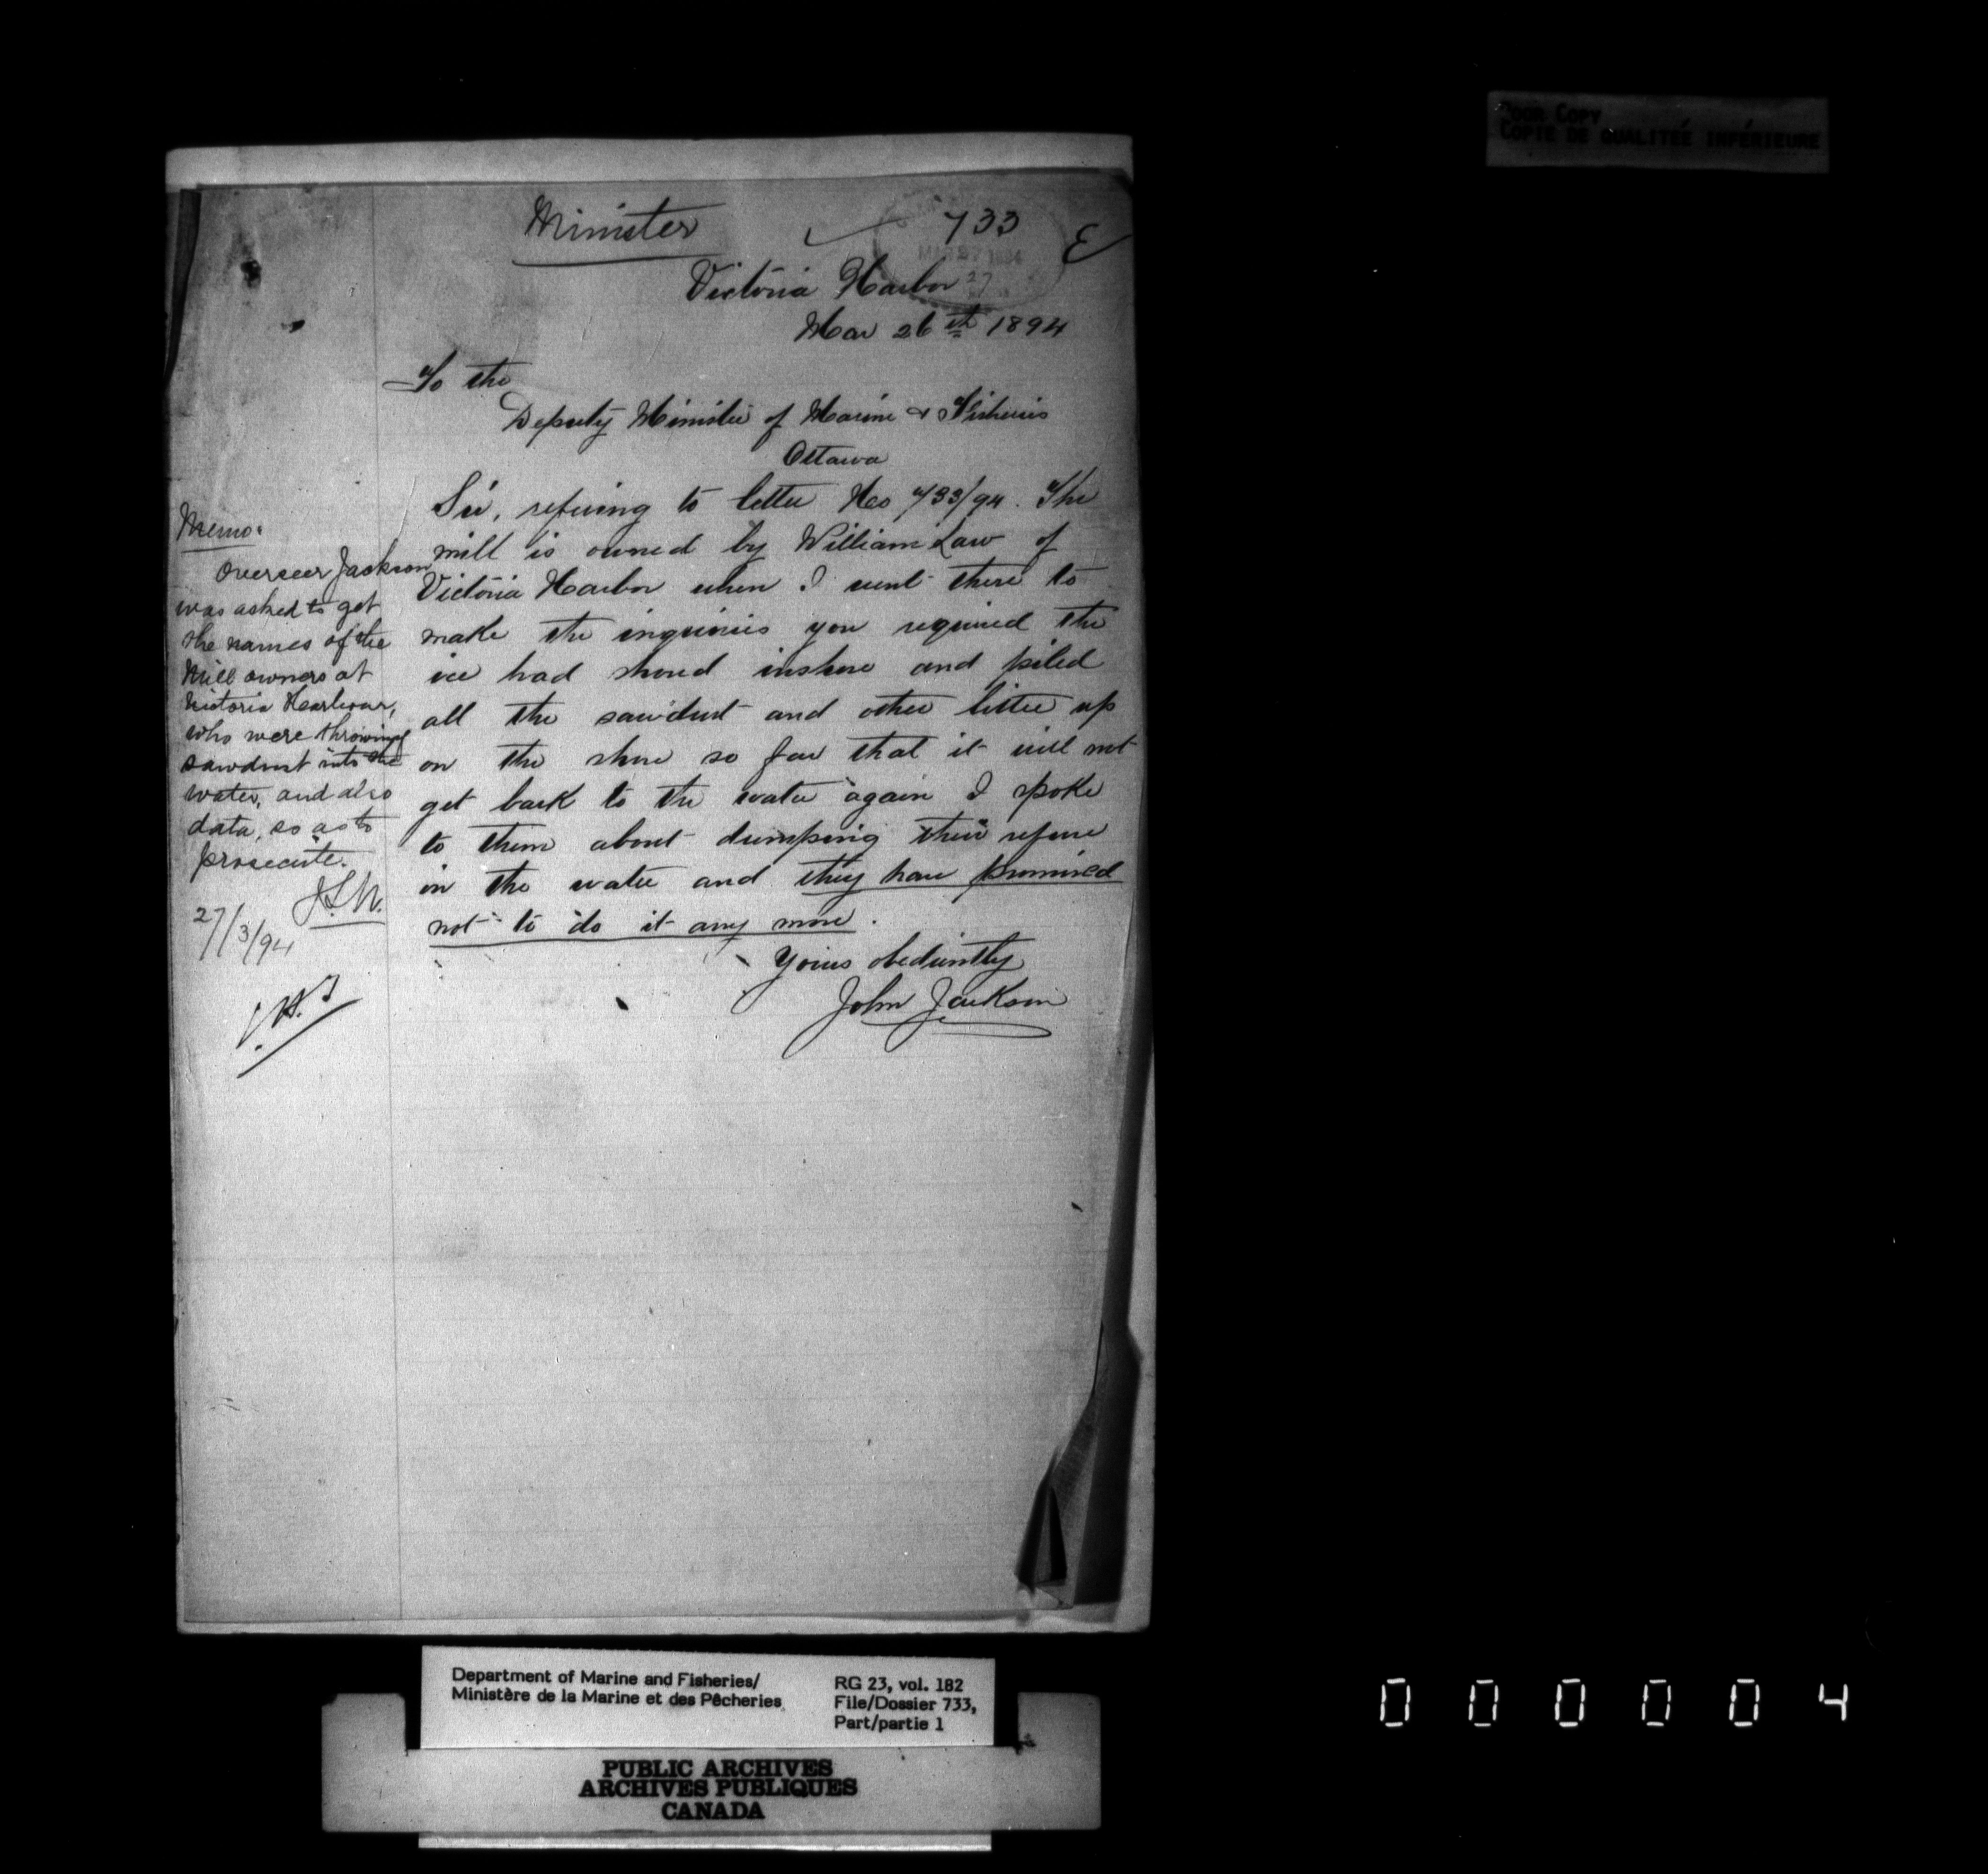 Poor Copy
Copie de qualiteé inférieure
Minister
733
E
MAR 27 1894
27
Victoria Harbor
Mar 26th 1894
To the
Deputy Minister of Marine & Fisheries
Ottawa
Sir, refering to letter No 733/94. The
mill is owned by William Law of
Victoria Harbor when I went there to
make the inquiries you required the
ice had shoved inshore and piled
all the sawdust and other litter up
on the shore so far that it will not
get back to the water again I spoke
to them about dumping their refuse
in the water and they have promised
not to do it any more.
Yours obediently
John Jackson
Memo:
Overseer Jackson
was asked to get
the names of the
Mill owners at
Victoria Harbour,
who were throwing
sawdust into the
water, and also
data, so as to
prosecute.
27/3/94
Department of Marine and Fisheries/
Ministère de la Marine et des Pêcheries
RG 23, vol. 182
File/Dossier 733,
Part/partie 1
PUBLIC ARCHIVES
ARCHIVES PUBLIQUES
CANADA
000004